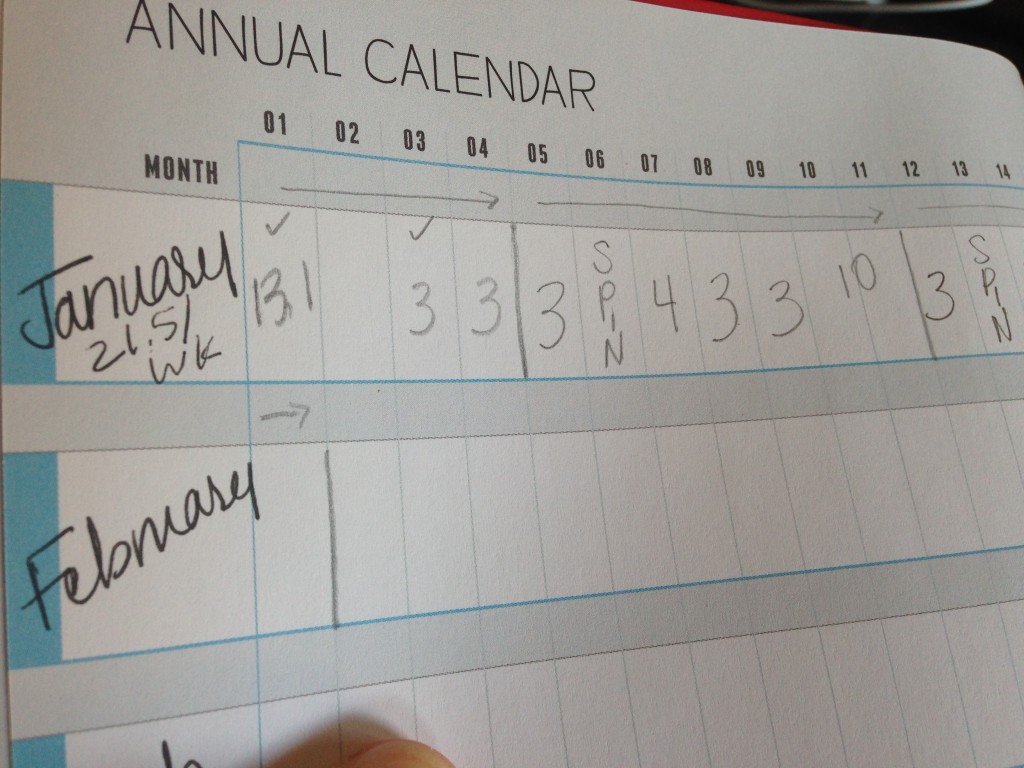 ANNUAL CALENDAR
MONTH 01 02 03 04 05 06 07 08 09 10 11 12 13 14
January 13.1 3 3 3 SPIN 4 3 3 10 3 SPIN
21.5/
WK
February